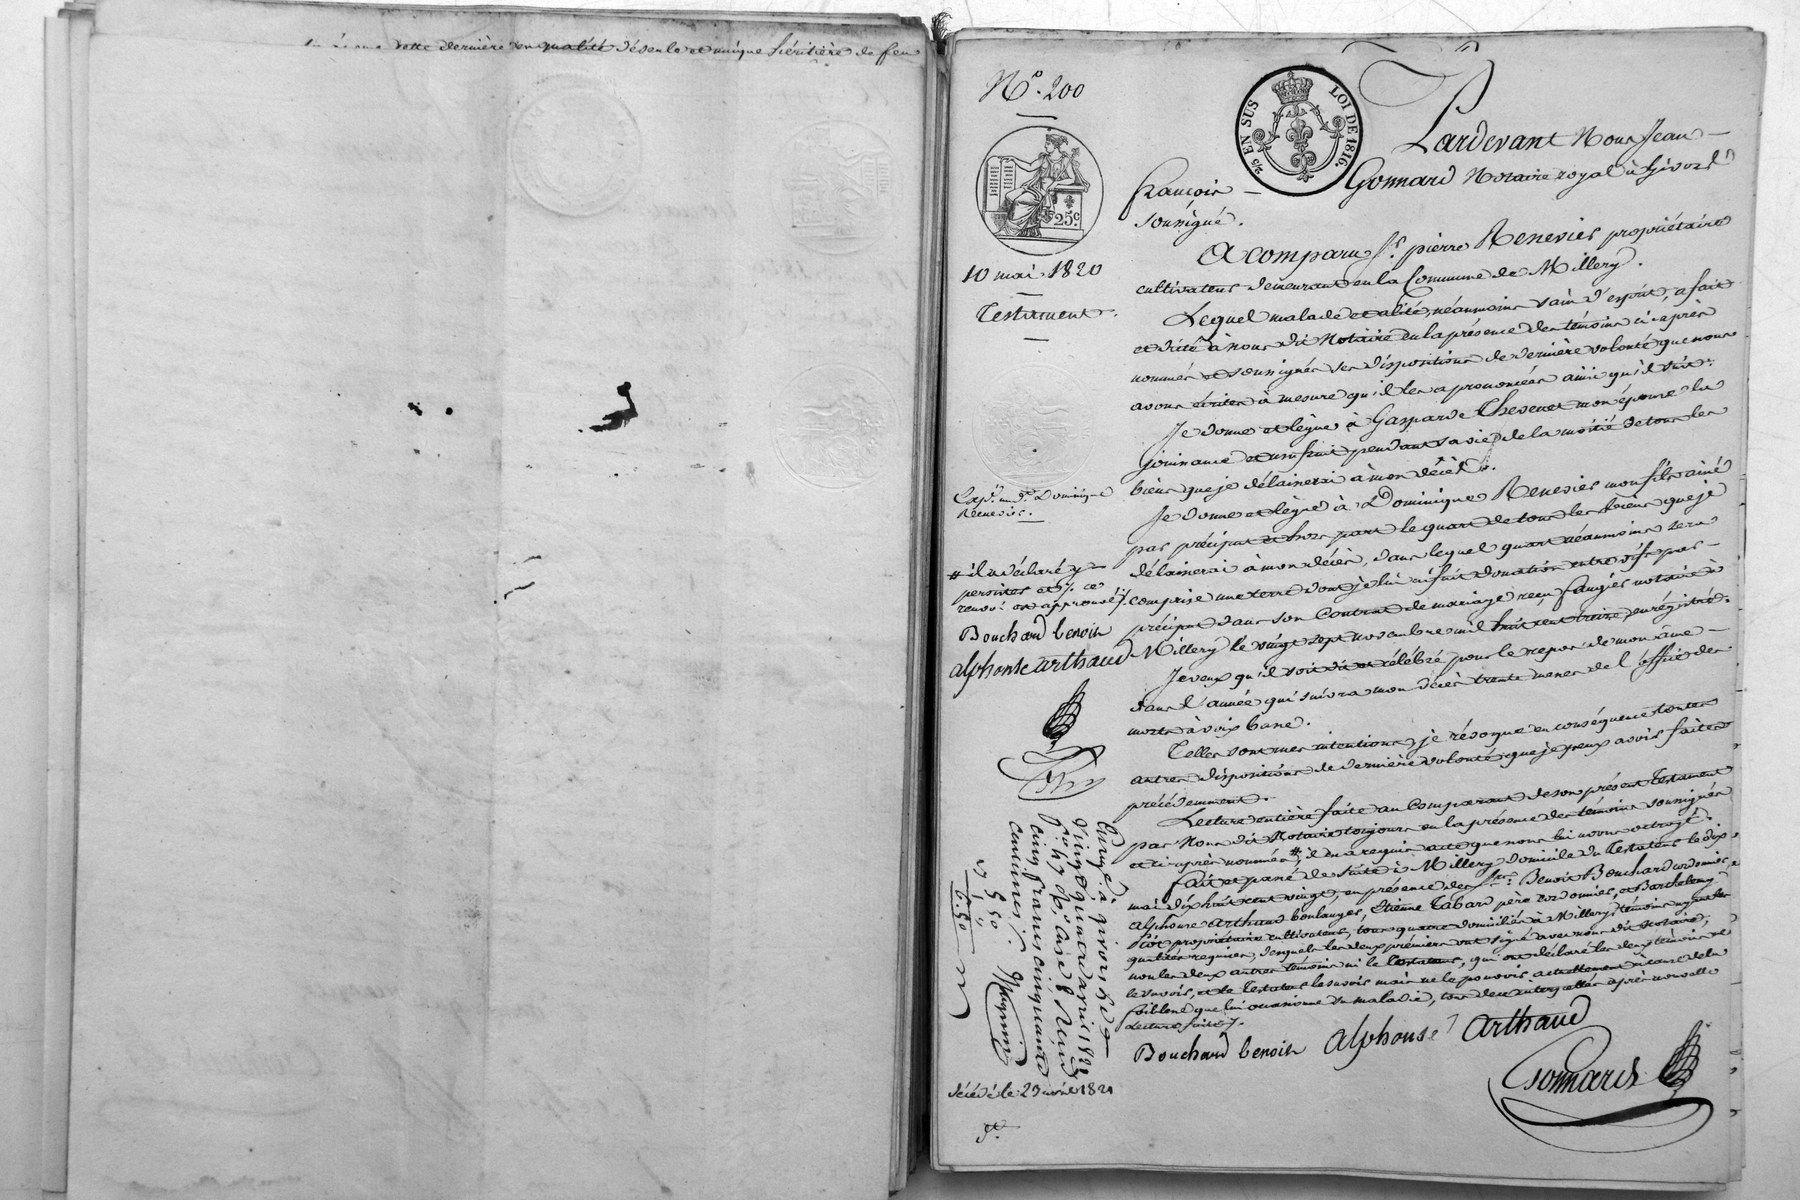 cette dernière en qualité de seule et unique héritière de feu
N.º 200
2/5 EN SUS
LOI DE 1816.
25c
10 mai 1820
Testament.
Pardevant Nous Jean-
François Gonnard Notaire royal à Givors
soussigné.
A comparu Sr. pierre Renevier propriétaire
cultivateur demeurant en la Commune de Millery.
Lequel malade et alité, néanmoins sain d'esprit, a fait
et dicté à nous dit Notaire en la présence des témoins ci après
nommés et soussignés ses dispositions de dernière volonté que nous
avons écrites à mesure qu'il les a prononcées ainsi qu'il suit.
Je donne et lègue à Gasparde Thevenet mon épouse la
jouissance et usufruit pendant sa vie de la moitié de tous les
biens que je délaisserai à mon décès.
Je donne et lègue à Dominique Renevier mon fils ainé
par préciput et hors part le quart de tous les biens que je
délaisserai à mon décès, dans lequel quart néanmoins sera
comprise une terre dont je lui ai fait donation entre vifs par
préciput dans son Contrat de mariage reçu Fangier notaire à
Millery le vingt sept novembre mil huit cent treize, enregistré.
Je veux qu'il soit dit et célébré pour le repos de mon âme
dans l'année qui suivra mon décès trente messes de l'office des
morts à voix basse.
Telles sont mes intentions, je révoque en conséquence toutes
autres dispositions de dernière volonté que je peux avoir faites
précédemment.
Lecture entière faite au Comparant de son présent Testament
par Nous dit Notaire toujours en la présence des témoins soussignés
et ci après nommés #, il en a requis acte que nous lui avons octroyé.
Fait et passé de suite à Millery domicile du Testateur le dix
mai dix huit cent vingt, en présence des Srs. Benoit Bouchard cordonnier,
alphonse Arthaud boulanger, Etienne Tabard père cordonnier, et Barthelemy
Piot propriétaire cultivateur, tous quatre domiciliés à Millery, témoins ayant les
qualités requises, desquels les deux premiers ont signé avec nous dit Notaire,
non les deux autres témoins ni le testateur, qui ont déclaré les deux témoins ne
le savoir, et le Testateur le savoir mais ne le pouvoir actuellement à cause de la
foiblesse que lui occasionne sa maladie, tous deux interpellés après nouvelle
Lecture faite.
Bouchard benoin alphonse arthaud
Gonnard
Exp. au Sr. Dominique
Renevier.
# il a déclaré y
persister et ce
renvoi est approuvé
Bouchard benoin
alphonse arthaud
Enregé. à Givors le
vingt quatre avril 1821
cinq francs cinquante
centimes.
5 50
6.50
décédé le 29 avril 1821